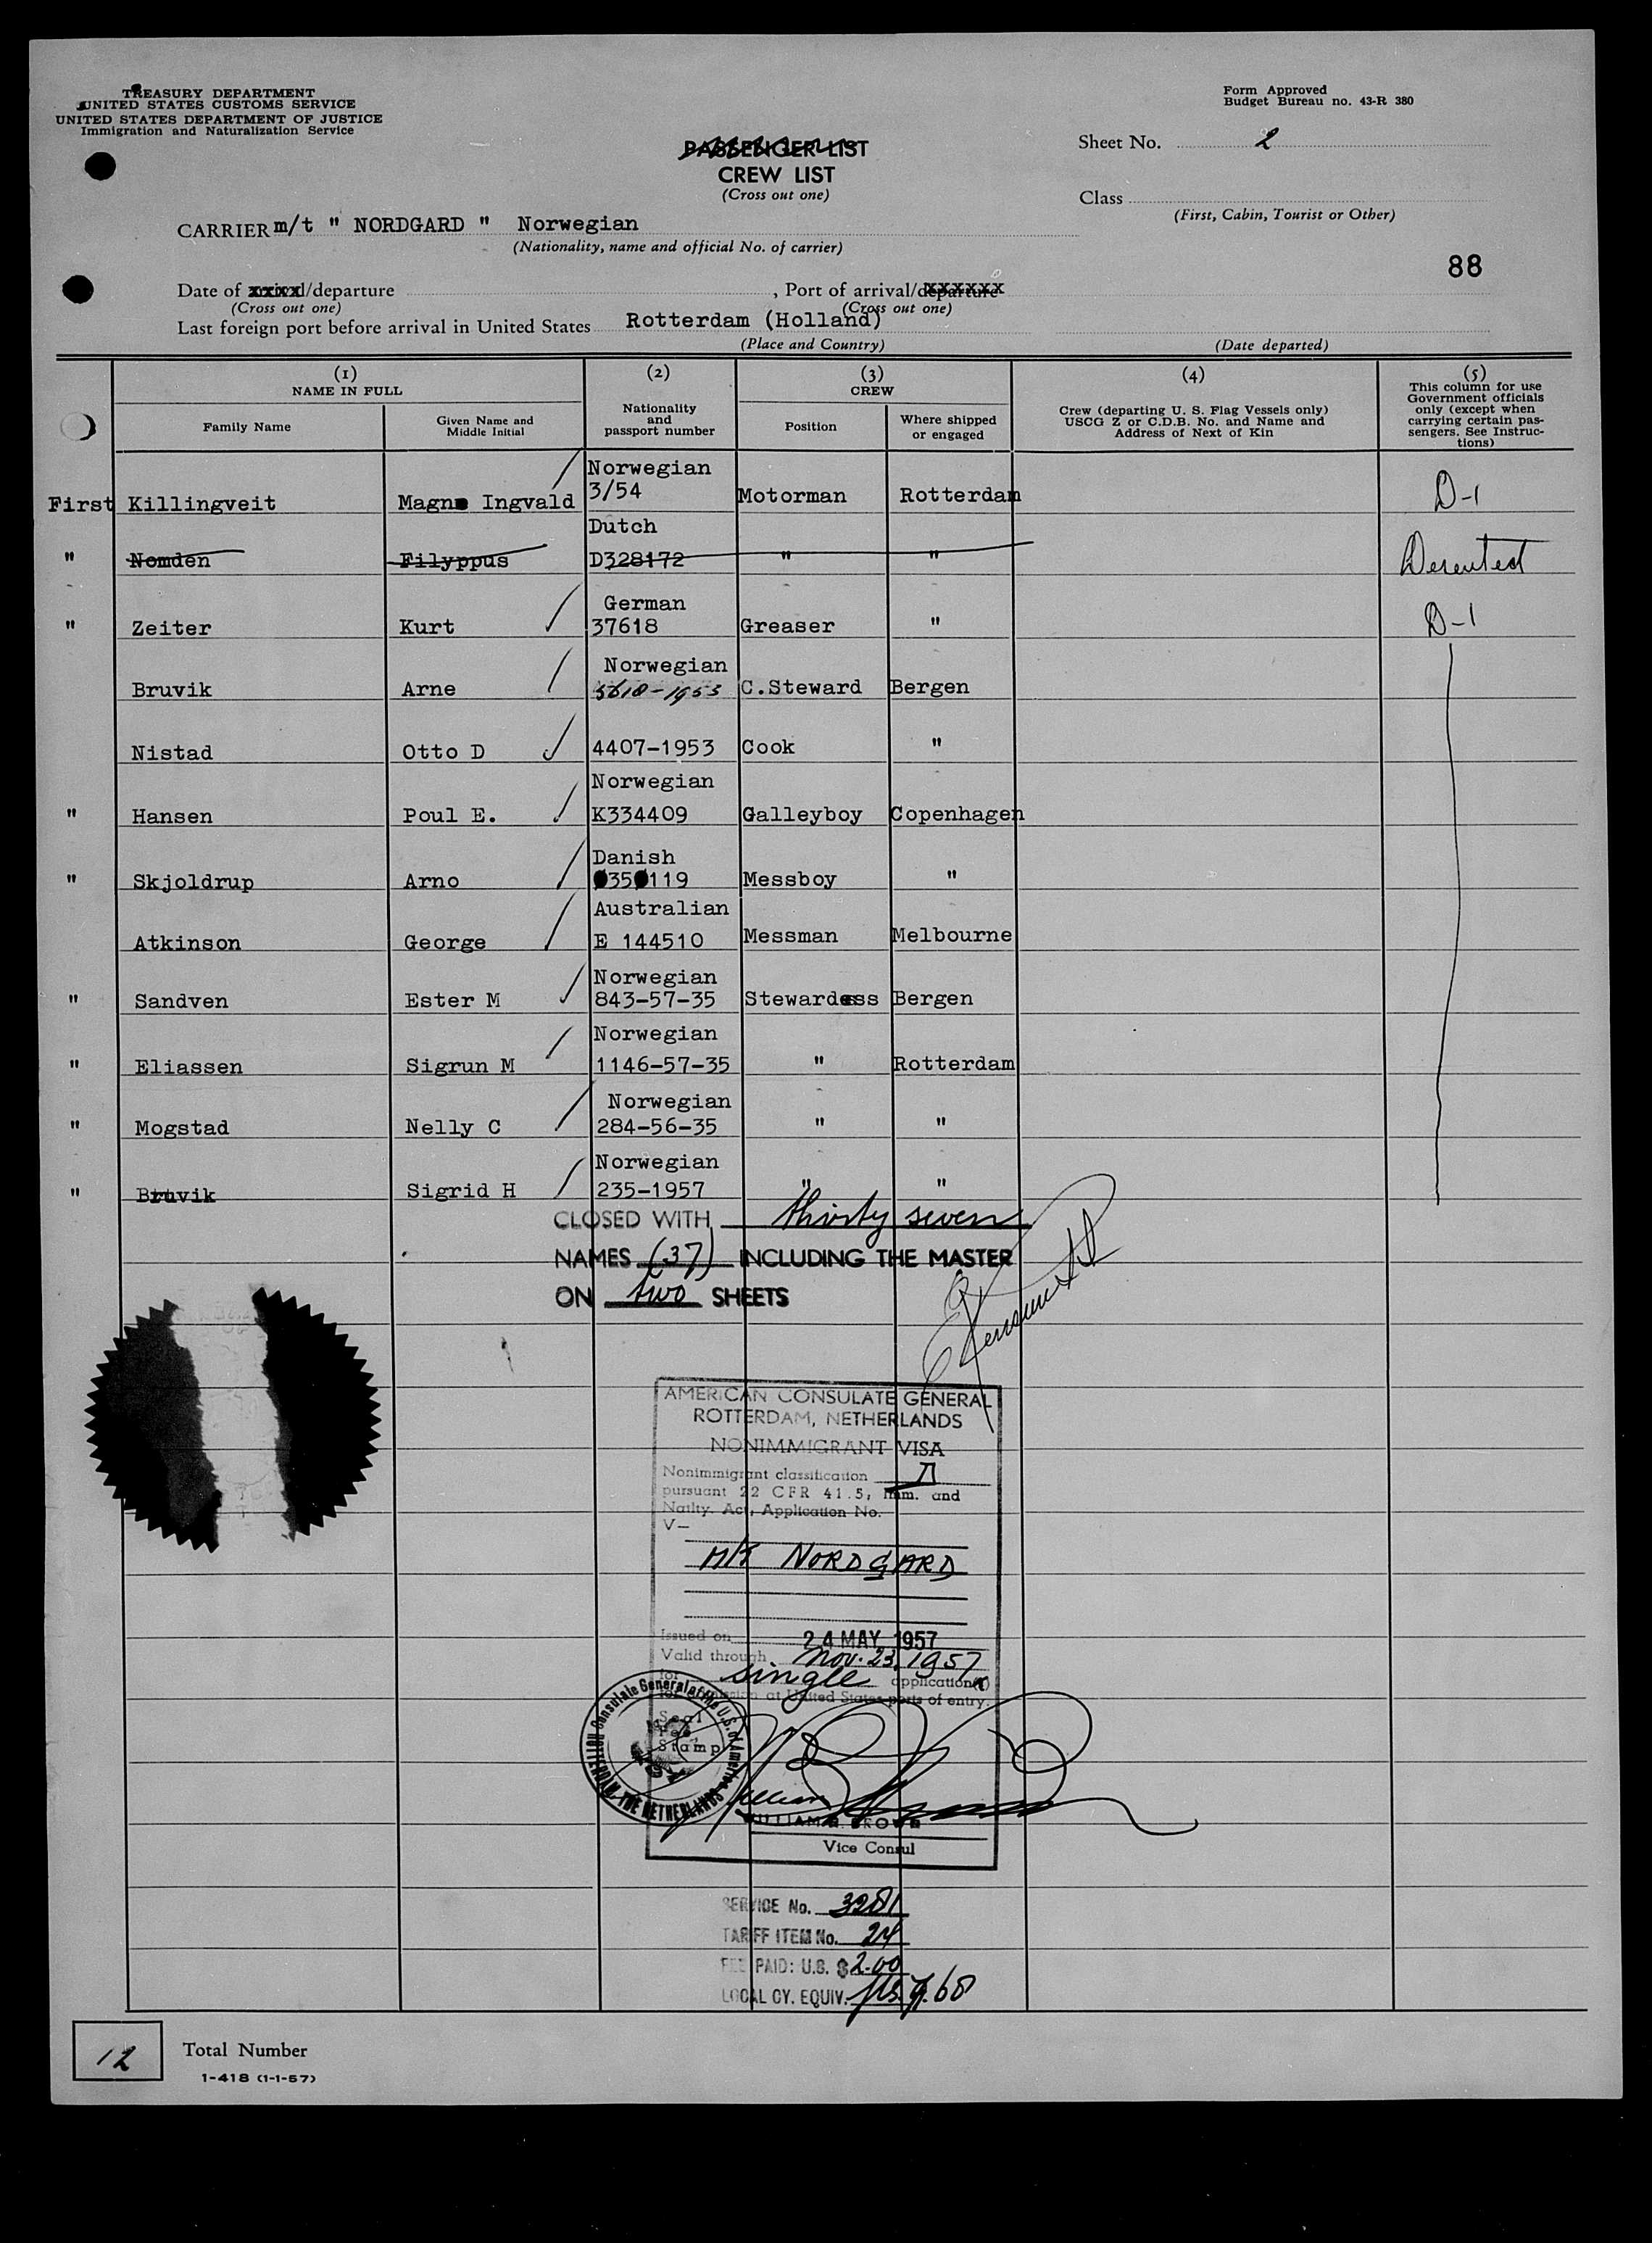 TREASURY DEPARTMENT
UNITED STATES CUSTOMS SERVICE
UNITED STATES DEPARTMENT OF JUSTICE
Immigration and Naturalization Service
Form Approved
Budget Bureau no. 43-R 380
PASSENGER LIST
CREW LIST
(Cross out one)
Sheet No. 2
Class
(First, Cabin, Tourist or Other)
CARRIER m/t " NORDGARD " Norwegian
(Nationality, name and official No. of carrier)
88
Date of /departure , Port of arrival/departure
(Cross out one) (Cross out one)
Last foreign port before arrival in United States Rotterdam (Holland)
(Place and Country) (Date departed)
(1) NAME IN FULL
Family Name
Given Name and Middle Initial
(2)
Nationality and passport number
(3) CREW
Position
Where shipped or engaged
(4)
Crew (departing U. S. Flag Vessels only)
USCG Z or C.D.B. No. and Name and
Address of Next of Kin
(5)
This column for use
Government officials
only (except when
carrying certain pas-
sengers. See Instruc-
tions)
First Killingveit Magne Ingvald Norwegian 3/54 Motorman Rotterdam D-1
" Nomden Filyppus Dutch D328172 " "
" Zeiter Kurt German 37618 Greaser " D-1
Bruvik Arne Norwegian 5618-1953 C.Steward Bergen
Nistad Otto D 4407-1953 Cook "
" Hansen Poul E. Norwegian K334409 Galleyboy Copenhagen
" Skjoldrup Arno Danish 0350119 Messboy "
Atkinson George Australian E 144510 Messman Melbourne
" Sandven Ester M Norwegian 843-57-35 Stewardess Bergen
" Eliassen Sigrun M Norwegian 1146-57-35 " Rotterdam
" Mogstad Nelly C Norwegian 284-56-35 " "
" Bruvik Sigrid H Norwegian 235-1957 " "
CLOSED WITH thirty seven
NAMES (37) INCLUDING THE MASTER
ON two SHEETS
AMERICAN CONSULATE GENERAL
ROTTERDAM, NETHERLANDS
NONIMMIGRANT VISA
Nonimmigrant classification D
pursuant 22 CFR 41.5, Imm. and
Natlty. Act, Application No.
V-
M/T NORDGARD
Issued on 24 MAY 1957
Valid through Nov. 23, 1957
for single application(s)
for admission at United States ports of entry.
Seal
Fee
Stamp
Consulate General of the U.S. of America
ROTTERDAM, THE NETHERLANDS
WILLIAM BROWN
Vice Consul
SERVICE No. 3281
TARIFF ITEM No. 24
FEE PAID: U.S. $ 2.00
LOCAL CY. EQUIV. fls. 7.68
12 Total Number
1-418 (1-1-57)